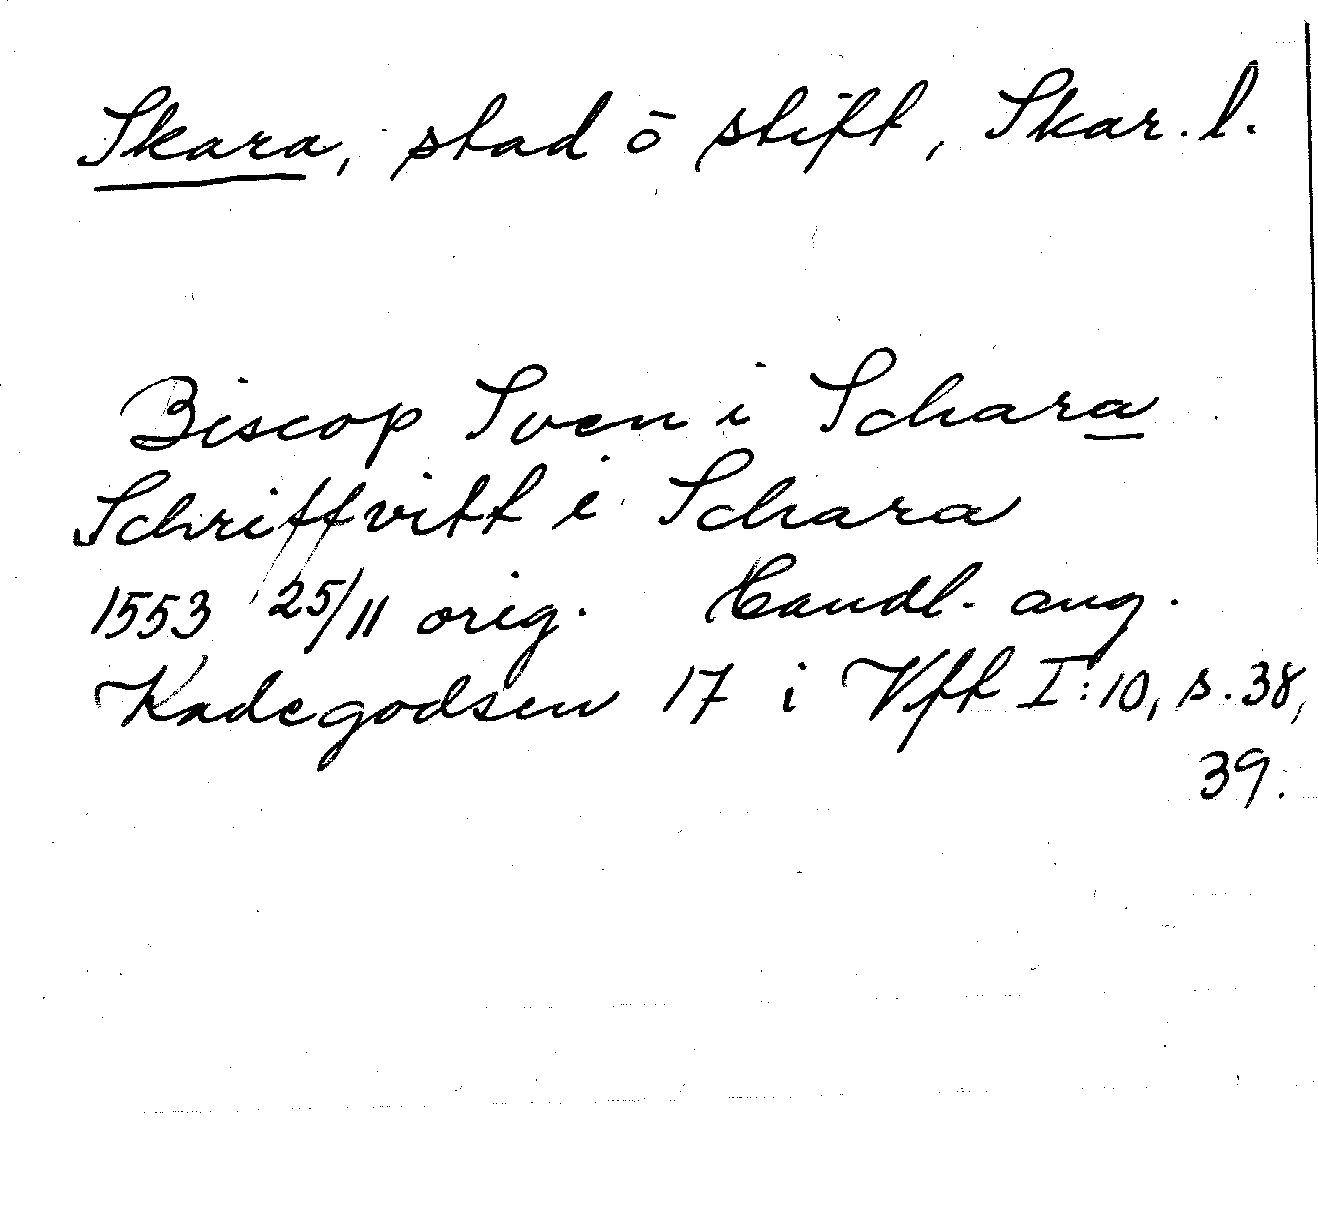 Skara, stad ō stift, Skar. l.
Biscop Sven i Schara
Schriffvitt i Schara
1553 25/11 orig. Handl. ang.
Kadegodsen 17 i Vft I:10, s. 38,
39.